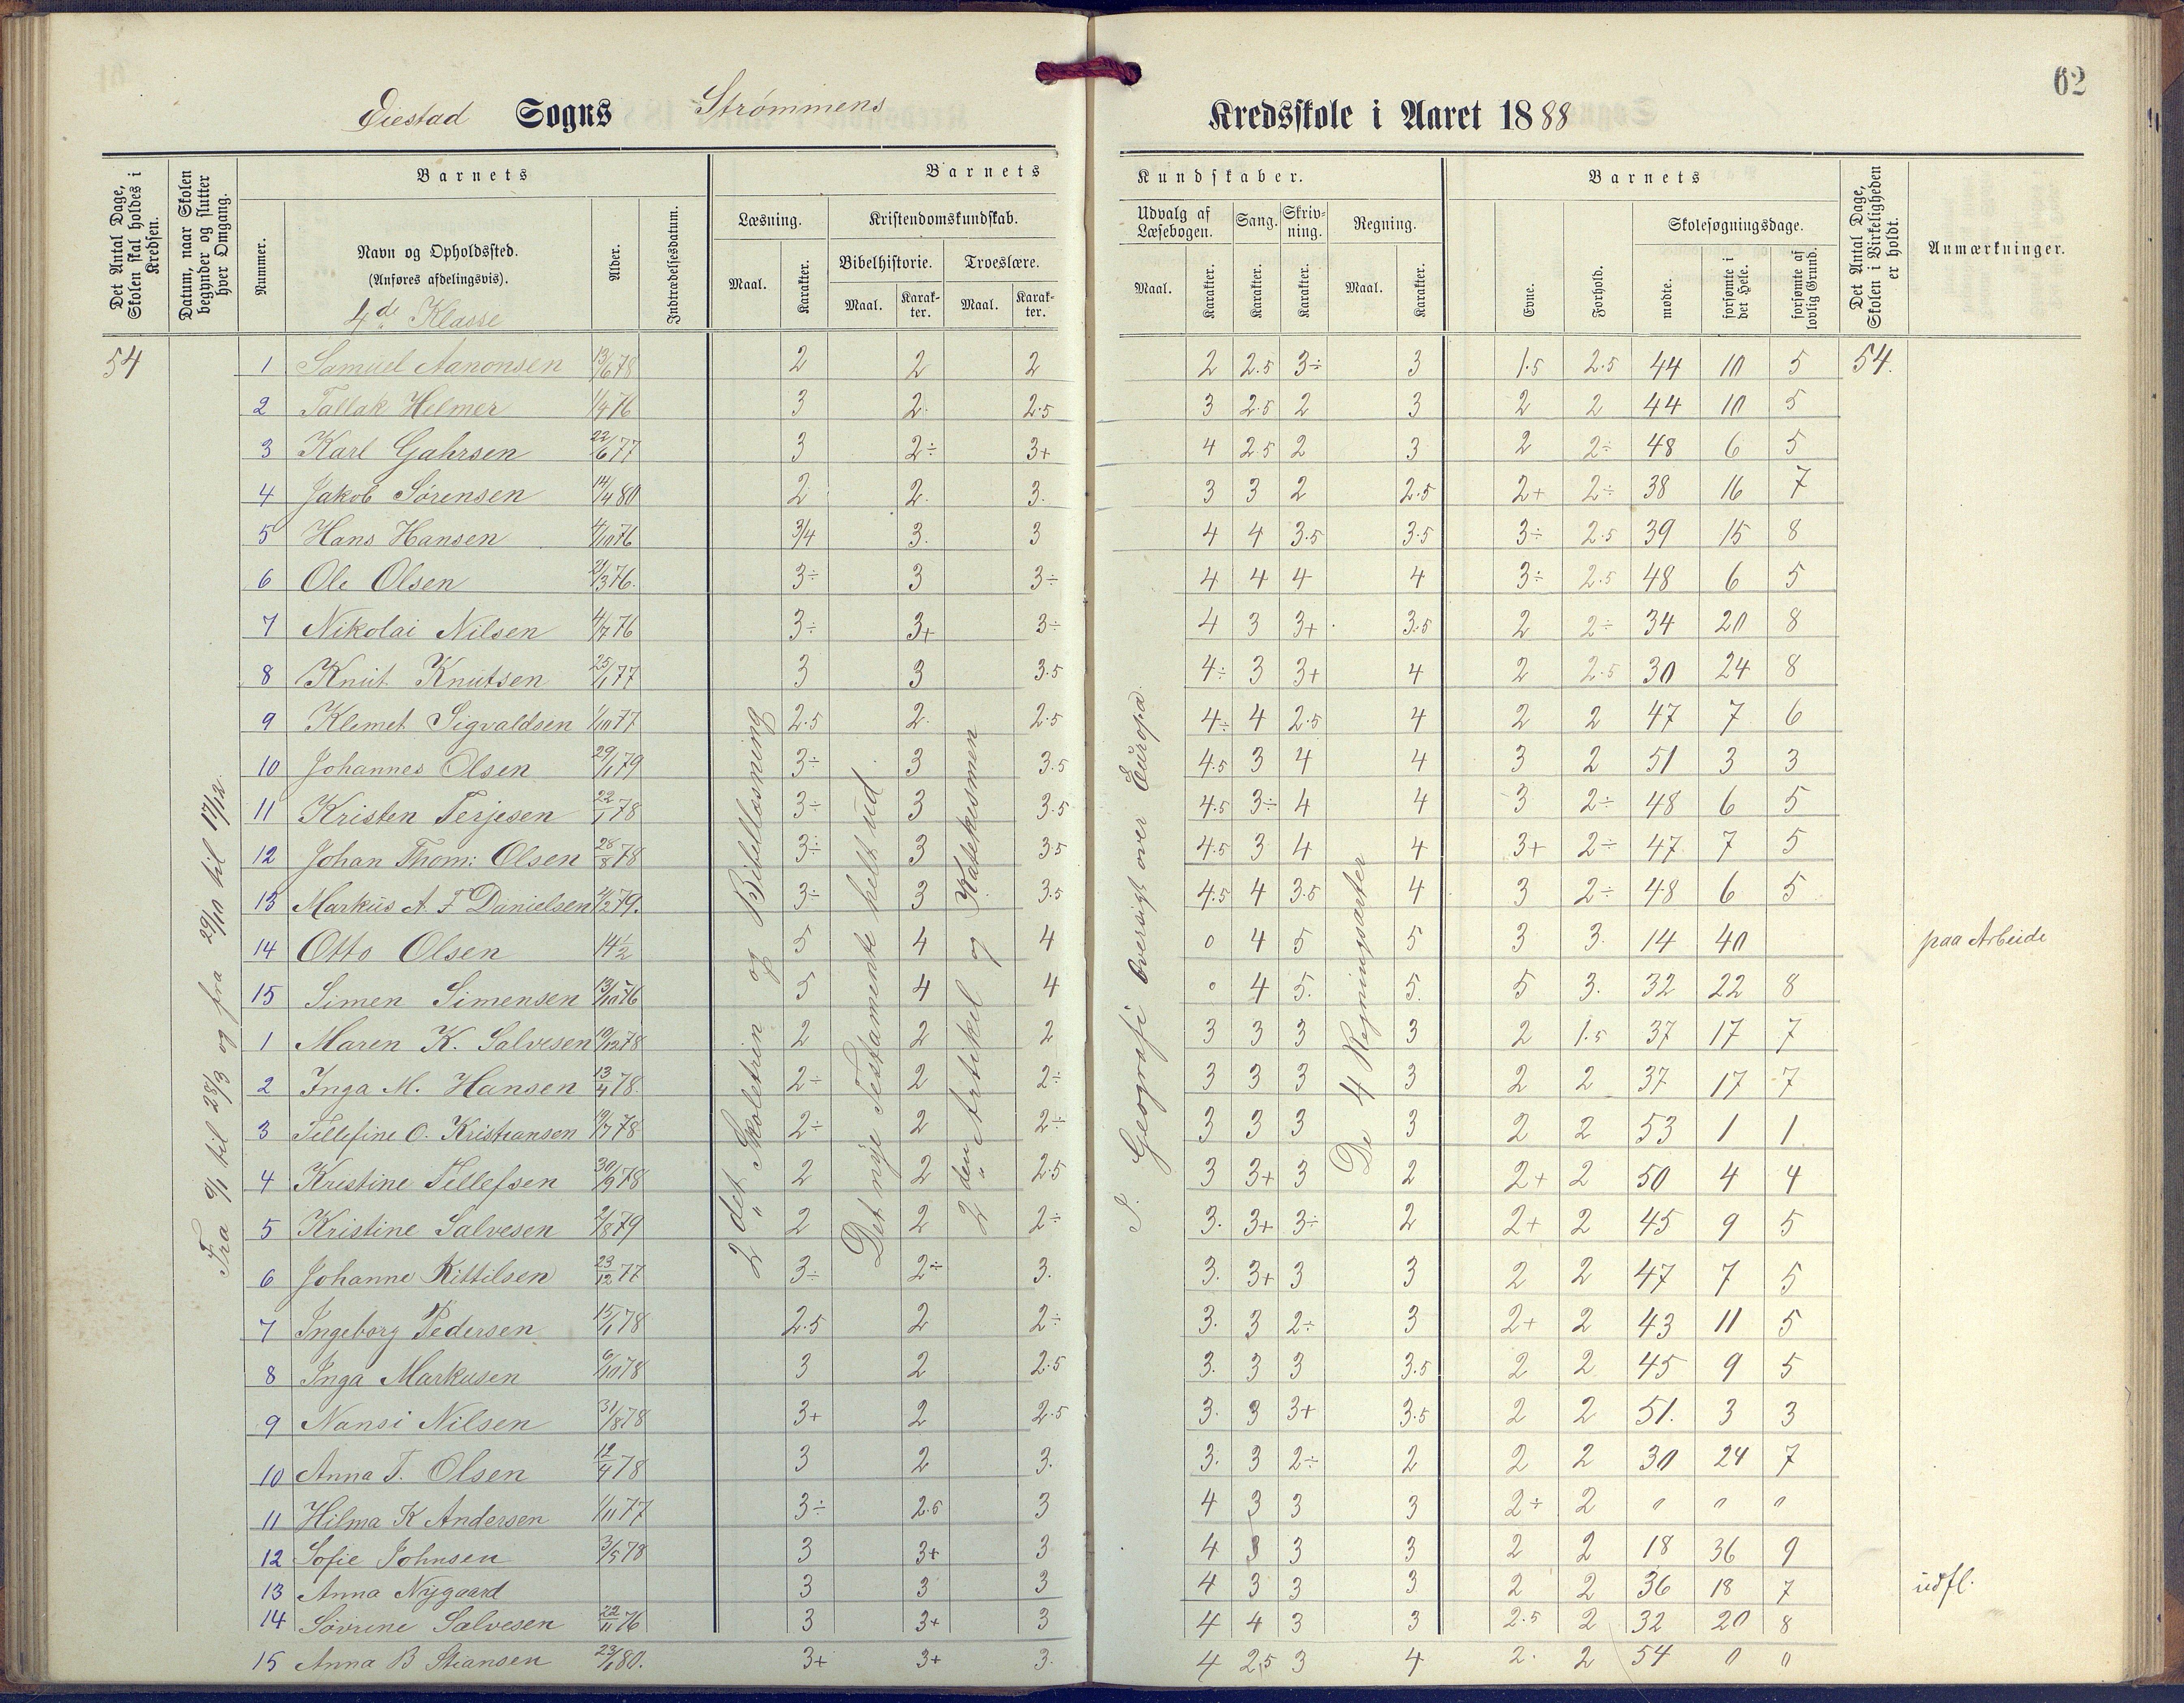 62
Eiestad Sogns Strømmens Kredsskole i Aaret 1888
Det Antal Dage, Skolen skal holdes i Kredsen.
Datum, naar Skolen begynder og slutter hver Omgang.
Barnets
Nummer.
Navn og Opholdssted.
(Anføres afdelingsvis).
4de Klasse
Alder.
Indtrædelsesdatum.
Barnets Kundskaber.
Læsning.
Maal. Karakter.
Kristendomskundskab.
Bibelhistorie. Troeslære.
Maal. Karakter. Maal. Karakter.
Udvalg af Læsebogen. Sang. Skrivning. Regning.
Maal. Karakter. Karakter. Karakter. Maal. Karakter.
Barnets
Evne. Forhold.
Skolesøgningsdage.
mødte. forsømte i det Hele. forsømte af lovlig Grund.
Det Antal Dage, Skolen i Virkeligheden er holdt.
Anmærkninger.
54 1 Samuel Aanonsen 13/6 78 2 2 2 2 2.5 3÷ 3 1.5 2.5 44 10 5 54.
2 Tallak Helmer 1/4 76 3 2 2.5 3 2.5 2 3 2 2 44 10 5
3 Karl Gahrsen 22/6 77 3 2÷ 3+ 4 2.5 2 3 2 2÷ 48 6 5
4 Jakob Sørensen 14/4 80 2 2 3. 3 3 2 2.5 2+ 2÷ 38 16 7
5 Hans Hansen 4/10 76 3/4 3. 3 4 4 3.5 3.5 3÷ 2.5 39 15 8
6 Ole Olsen 21/3 76. 3÷ 3 3÷ 4 4 4 4 3÷ 2.5 48 6 5
7 Nikolai Nilsen 4/7 76 3÷ 3+ 3÷ 4 3 3+ 3.5 2 2÷ 34 20 8
8 Knut Knutsen 25/1 77 3 3 3.5 4÷ 3 3+ 4 2 2.5 30 24 8
9 Klemet Sigvaldsen 1/10 77 2.5 2 2.5 4÷ 4 2.5 4 2 2 47 7 6
10 Johannes Olsen 29/1 79 3÷ 3 3.5 4.5 3 4 4 3 2 51 3 3
11 Kristen Terjesen 22/1 78 3÷ 3 3.5 4.5 3÷ 4 4 3 2÷ 48 6 5
12 Johan Thom: Olsen 28/8 78 3÷ 3 3.5 4.5 3 4 4 3+ 2÷ 47 7 5
13 Markus A. F Danielsen 2/12 79. 3÷ 3 3.5 4.5 4 3.5 4 3 2÷ 48 6 5
14 Otto Olsen 14½ 5 4 4 0 4 5 5 3 3 14 40 paa Arbeide
15 Simen Simensen 13/10 76 5 4 4 0 4 5. 5. 5 3. 32 22 8
1 Maren K. Salvesen 10/12 78 2 2 2 3 3 3 3 2 1.5 37 17 7
2 Inga M. Hansen 13/4 78. 2÷ 2 2÷ 3 3 3 3 2 2 37 17 7
3 Tellefine O. Kristiansen 19/7 78 2÷ 2 2÷ 3 3 3 3 2 2 53 1 1
4 Kristine Tellefsen 30/9 78 2 2 2.5 3 3+ 3 2 2+ 2 50 4 4
5 Kristine Salvesen 2/8 79 2 2 2÷ 3. 3+ 3÷ 2 2+ 2 45 9 5
6 Johanne Kittilsen 23/12 77 3÷ 2÷ 3. 3. 3+ 3 3 2 2 47 7 5
7 Ingeborg Pedersen 15/1 78 2.5 2 2÷ 3. 3 2÷ 3 2+ 2 43 11 5
8 Inga Markusen 6/10 78 3 2 2.5 3. 3 3 3.5 2 2 45 9 5
9 Nansi Nilsen 31/8 78 3+ 2 2.5 3. 3 3+ 3.5 2 2 51. 3 3
10 Anna T. Olsen 12/4 78 3 2 3. 3. 3 2÷ 2 2 2 30 24 7
11 Hilma K Andersen 1/11 77 3÷ 2.5 3 4 3 3 3 2÷ 2 0 0 0
12 Sofie Johnsen 3/5 78 3 3+ 3 4 3 3 3 2 2 18 36 9
13 Anna Nygaard 3 3 3 4 3 3 3 2 2 36 18 7 udfl.
14 Sovrine Salvesen 22/11 76 3 3+ 3 4 4 3 3 2.5 2 32 20 8
15 Anna B Stiansen 23/1 80. 3+ 3+ 3. 4 2,5 3 4 2. 2 54 0 0
Fra 9/1 til 28/3 og fra 29/10 til 17/12.
2det Skoletrin og Bibellæsning
Det nye Testamente helt ud
2den Artikel og Katekesmen
I. Geografi Oversigt over Europa
De 4 Regningsarter